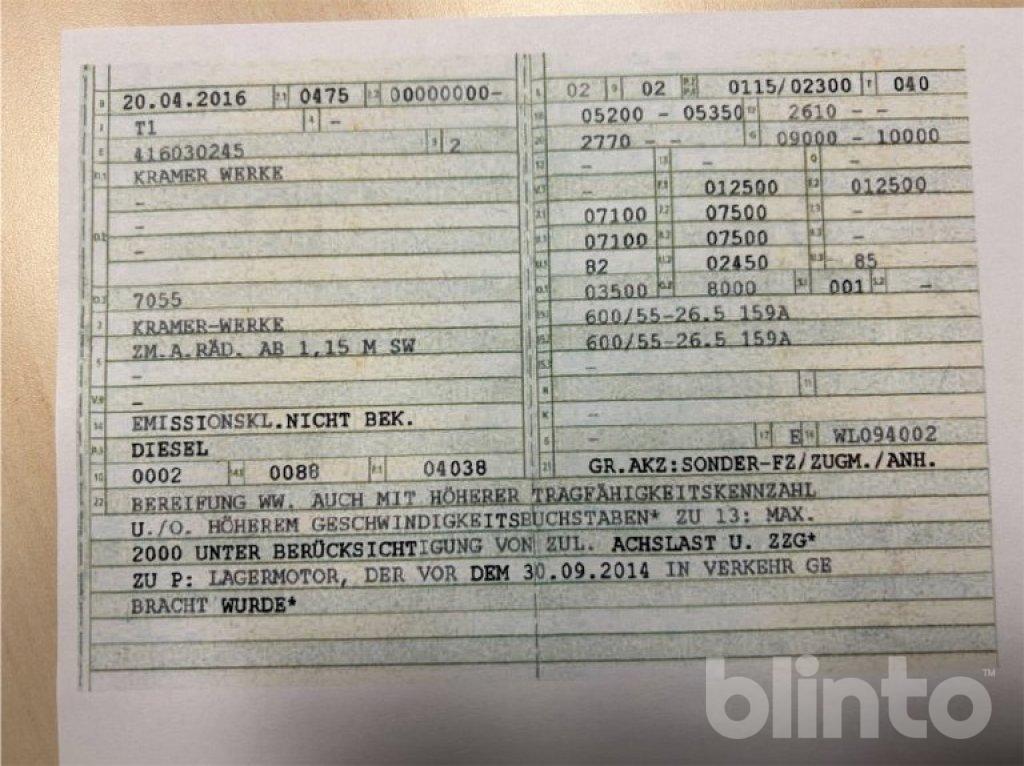 B 20.04.2016 2.1 0475 2.2 00000000-
J T1 4 -
E 416030245 3 2
D.1 KRAMER WERKE
-
-
D.2 -
D.3 7055
2 KRAMER-WERKE
5 ZM.A.RÄD. AB 1,15 M SW
-
V.9 -
14 EMISSIONSKL.NICHT BEK.
P.3 DIESEL
10 0002 14.1 0088 P.1 04038
L 02 9 02 P.2 P.4 0115/02300 T 040
18 05200 - 05350 19 2610 - -
20 2770 - - G 09000 - 10000
12 - 13 - Q -
V.7 - F.1 012500 F.2 012500
7.1 07100 7.2 07500 7.3 -
8.1 07100 8.2 07500 8.3 -
U.1 82 U.2 02450 U.3 - 85
O.1 03500 O.2 8000 S.1 001 S.2 -
15.1 600/55-26.5 159A
15.2 600/55-26.5 159A
15.3 -
R 11
K --
6 - 17 E 16 WL094002
21 GR.AKZ:SONDER-FZ/ZUGM./ANH.
22 BEREIFUNG WW. AUCH MIT HÖHERER TRAGFÄHIGKEITSKENNZAHL
U./O. HÖHEREM GESCHWINDIGKEITSBUCHSTABEN* ZU 13: MAX.
2000 UNTER BERÜCKSICHTIGUNG VON ZUL. ACHSLAST U. ZZG*
ZU P: LAGERMOTOR, DER VOR DEM 30.09.2014 IN VERKEHR GE
BRACHT WURDE*
blinto™